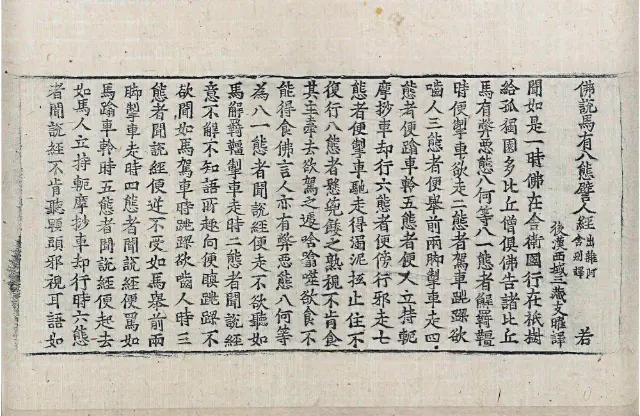 佛說馬有八態譬人經 出雜阿含別譯 若
後漢西域三藏支曜譯
聞如是一時佛在舍衛國行在祇樹
給孤獨園多比丘僧俱佛告諸比丘
馬有弊惡態八何等八一態者解羈韁
時便掣車欲走二態者駕車跳踝欲
嚙人三態者便舉前兩脚掣車走四
態者便蹹車軨五態者便人立持軛
摩抄車却行六態者便傍行邪走七
態者便掣車馳走得濁泥抂止住不
復行八態者懸篼餧之熟視不肯食
其主牽去欲駕之遽唅噏噬欲食不
能得食佛言人亦有弊惡態八何等
為八一態者聞說經便走不欲聽如
馬解羈韁掣車走時二態者聞說經
意不解不知語所趣向便瞋跳踝不
欲聞如馬駕車時跳踝欲嚙人時三
態者聞說經便逆不受如馬舉前兩
脚掣車走時四態者聞說經便罵如
馬蹹車軨時五態者聞說經便起去
如馬人立持軛摩抄車却行時六態
者聞說經不肯聽頭邪視耳語如